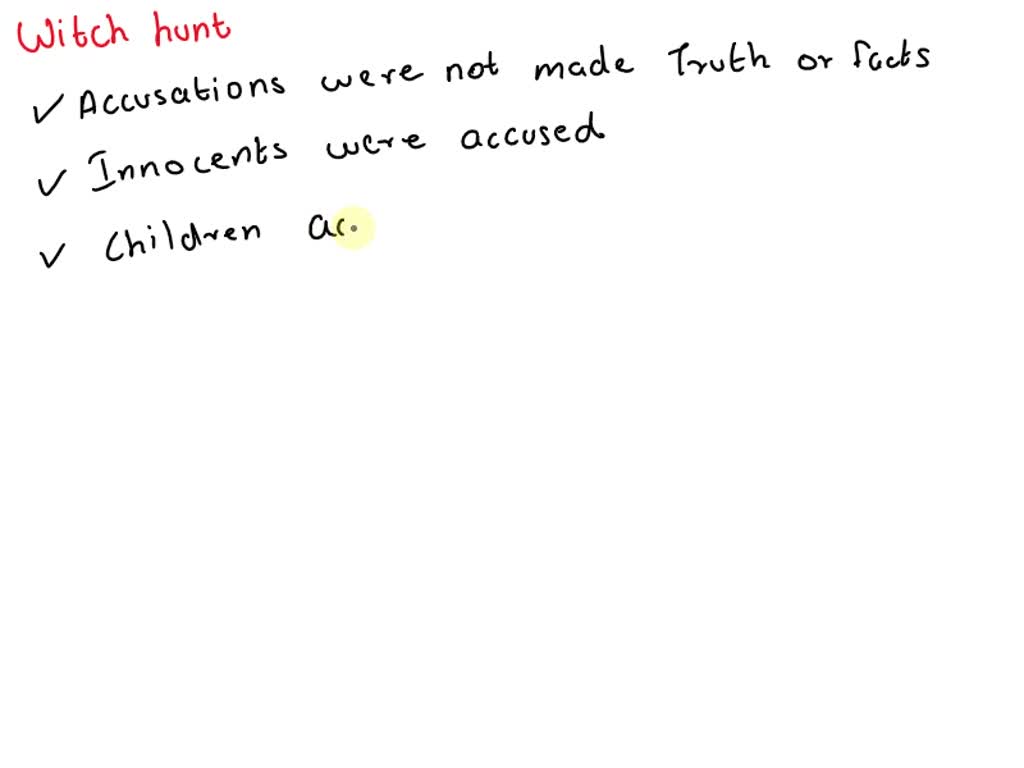 Witch hunt
✓ Accusations were not made Truth or facts
✓ Innocents were accused
✓ Children ac